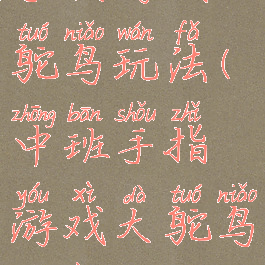 tuó niǎo wán fǎ
鸵鸟玩法(
zhōng bān shǒu zhǐ
中班手指
yóu xì dà tuó niǎo
游戏大鸵鸟